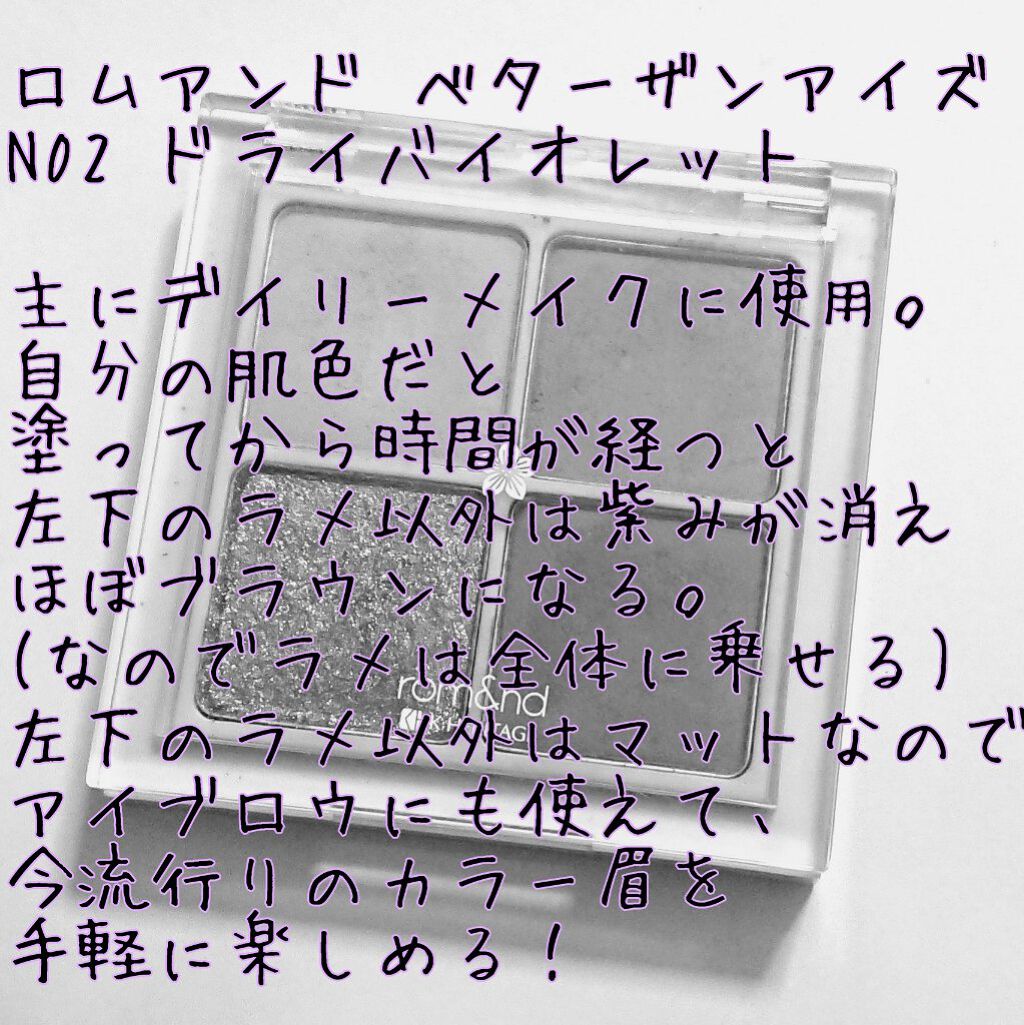 ロムアンド ベターザンアイズ
N02 ドライバイオレット
主にデイリーメイクに使用。
自分の肌色だと
塗ってから時間が経つと
左下のラメ以外は紫みが消え
ほぼブラウンになる。
(なのでラメは全体に乗せる)
rom&nd
左下のラメ以外はマットなので
アイブロウにも使えて、
今流行りのカラー眉を
手軽に楽しめる!